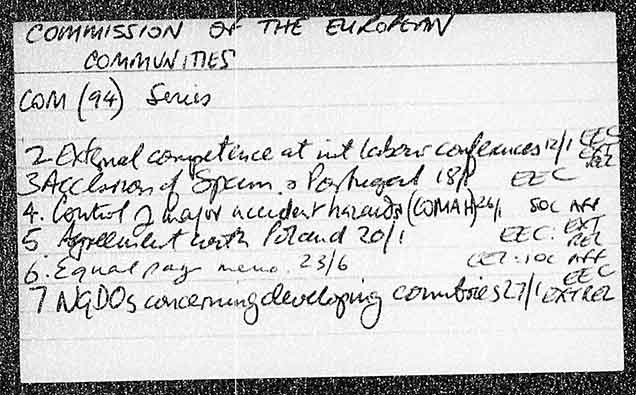 COMMISSION OF THE EUROPEAN
COMMUNITIES
COM (94) Series
2 External competence at int labour conferences 12/1 EEC EXT REL
3 Accession of Spain & Portugal 18/ EEC
4. Control of major accident hazards (COMAH) 26/1 SOC AFF
5 Agreement with Poland 20/1 EEC: EXT REL
6. Equal pay memo. 23/6 EEC: SOC AFF
7 NGDOs concerning developing countries 27/1 EEC EXT REL